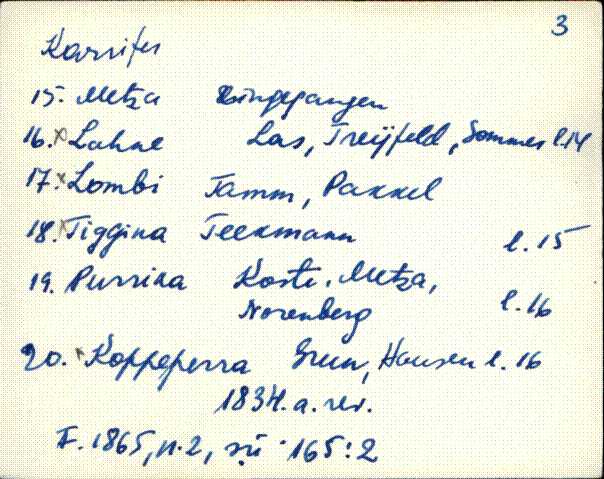 3
Karrifer
15. Metza Eingegangen
16. x Lahne Las, Treijfeld, Sommer l.14
17. x Lombi Tamm, Pakkel
18. x Tiggina Teekmann l. 15
19. Purrika Koste, Metza,
Norenberg l. 16
20. x Koppeperra Grun, Hansen l. 16
1834. a. rev.
F. 1865, n. 2, sü. 165:2